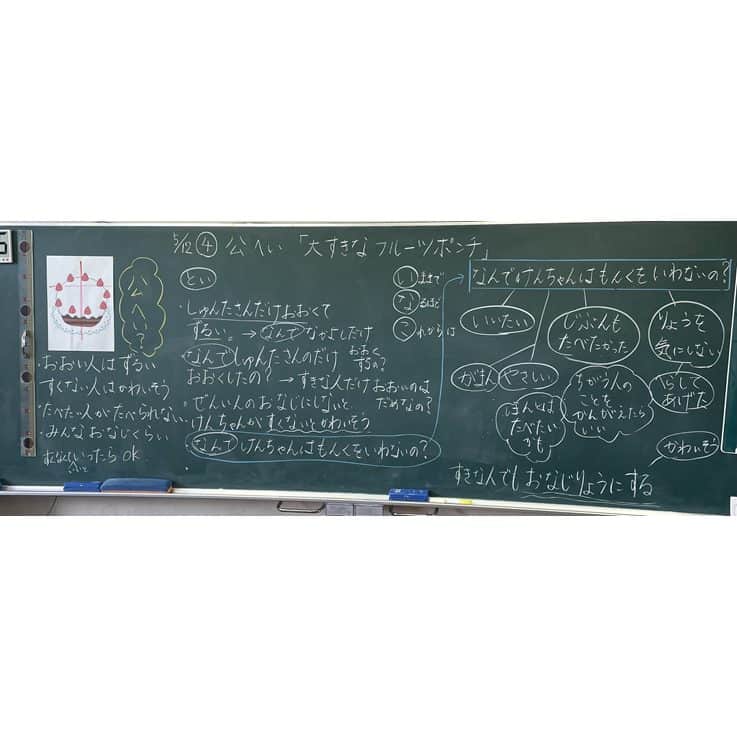 5/12 ④ 公へい 「大すきなフルーツポンチ」
公へい?
・おおい人はずるい
すくない人はかわいそう
・たべたい人がたべられない
・みんなおなじくらい
すくなくていいったらOK
とい
・しゅんたさんだけおおくて
ずるい。→なんでなかよしだけ
おおくするの?
なんでしゅんたさんのだけ
おおくしたの?→すきな人だけおおいのは
だめなの?
・ぜんいんのおなじにしないと、
・けんちゃんがすくないとかわいそう
なんでけんちゃんはもんくをいわないの?
いままで
なるほど
これからは
なんでけんちゃんはもんくをいわないの?
いいたい
じぶんも
たべたかった
りょうを
気にしない
がまん
やさしい
ちがう人の
ことを
かんがえたら
いい
へらして
あげた
ほんとは
たべたい
かも
かわいそう
すきな人でもおなじりょうにする